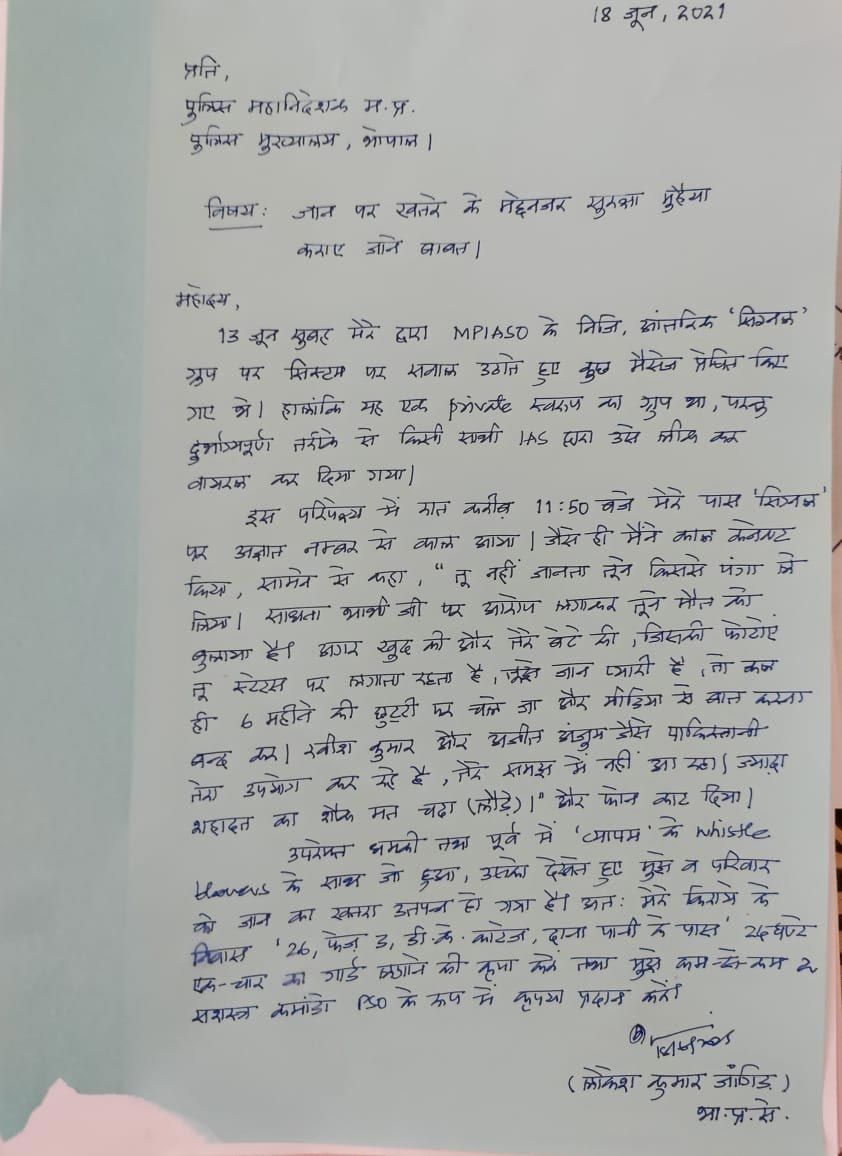 18 जून, 2021
प्रति,
पुलिस महानिदेशक म.प्र.
पुलिस मुख्यालय, भोपाल।
विषय: जान पर खतरे के मद्देनजर सुरक्षा मुहैया
कराए जाने बाबत।
महोदय,
13 जून सुबह मेरे द्वारा MPIASO के निजि, आंतरिक 'सिग्नल'
ग्रुप पर सिस्टम पर सवाल उठाते हुए कुछ मैसेज प्रेषित किए
गए थे। हालांकि यह एक private स्वरूप का ग्रुप था, परन्तु
दुर्भाग्यपूर्ण तरीके से किसी साथी IAS द्वारा उसे लीक कर
वायरल कर दिया गया।
इस परिपेक्ष्य में रात करीब 11:50 बजे मेरे पास 'सिग्नल'
पर अज्ञात नम्बर से काल आया। जैसे ही मैंने काल कनेक्ट
किया, सामने से कहा, "तू नहीं जानता तूने किससे पंगा ले
लिया। साधना भाभी जी पर आरोप लगाकर तूने मौत को
बुलाया है। अगर खुद की और तेरे बेटे की, जिसकी फोटोएं
तू स्टेटस पर लगाता रहता है, तुझे जान प्यारी है, तो कल
ही 6 महीने की छुट्टी पर चले जा और मीडिया से बात करना
बन्द कर। रवीश कुमार और अजीत अंजुम जैसे पाकिस्तानी
तेरा उपयोग कर रहे है, तेरे समझ में नहीं आ रहा। ज्यादा
शहादत का शौक मत चढा (लौड़े)।" और फोन काट दिया।
उपरोक्त धमकी तथा पूर्व में 'व्यापम' के whistle
blowers के साथ जो हुआ, उसको देखते हुए मुझे व परिवार
को जान का खतरा उत्पन्न हो गया है। अत: मेरे किराये के
निवास '26, फेज़ 3, डी.के. कॉटेज, दाना पानी के पास' 24 घण्टे
एक-चार का गार्ड लगाने की कृपा करें तथा मुझे कम-से-कम 2
सशस्त्र कमांडो PSO के रूप में कृपया प्रदान करें।
(लोकेश कुमार जाँगिड़)
भा.प्र.से.